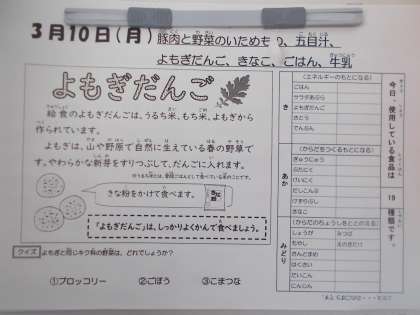 3月10日(月) 豚肉と野菜のいためもの、五目汁、
よもぎだんご、きなこ、ごはん、牛乳
よもぎだんご
給食のよもぎだんごは、うるち米、もち米、よもぎから
作られています。
よもぎは、山や野原で自然に生えている春の野草で
す。やわらかな新芽をすりつぶして、だんごに入れます。
きな粉をかけて食べます。
「よもぎだんご」は、しっかりよくかんで食べましょう。
クイズ よもぎと同じキク科の野菜は、どれでしょうか?
①ブロッコリー ②ごぼう ③こまつな
今日、使用している食品は 19 種類です。
き
(エネルギーのもとになる)
ごはん
サラダあぶら
よもぎだんご
さとう
でんぷん
あか
(からだをつくるもとになる)
ぎゅうにゅう
ぶたにく
けいにく
だしこんぶ
けずりぶし
きなこ
みどり
(からだのちょうしをととのえる)
しょうが みつば
もやし えのきたけ
さんどまめ
はくさい
だいこん
にんじん